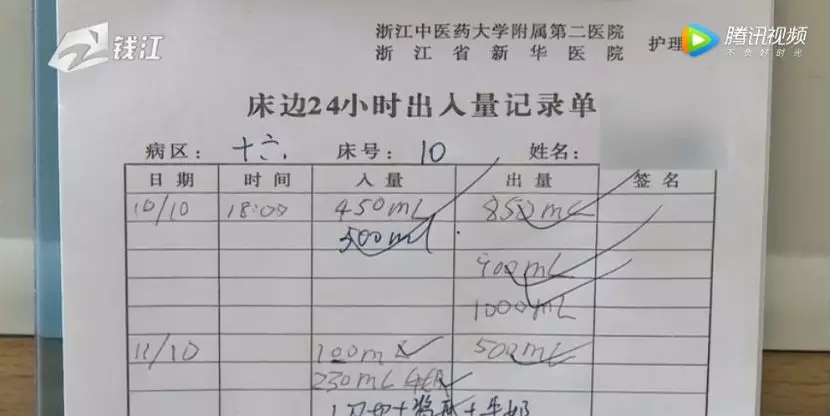 钱江
浙江中医药大学附属第二医院
浙江省新华医院
护理
腾讯视频
不负好时光
床边24小时出入量记录单
病区: 十六 床号: 10 姓名:
日期 时间 入量 出量 签名
10/10 18:00 450mL 850mL
500ml
400mL
1000mL
11/10 100m 500mL
230mL